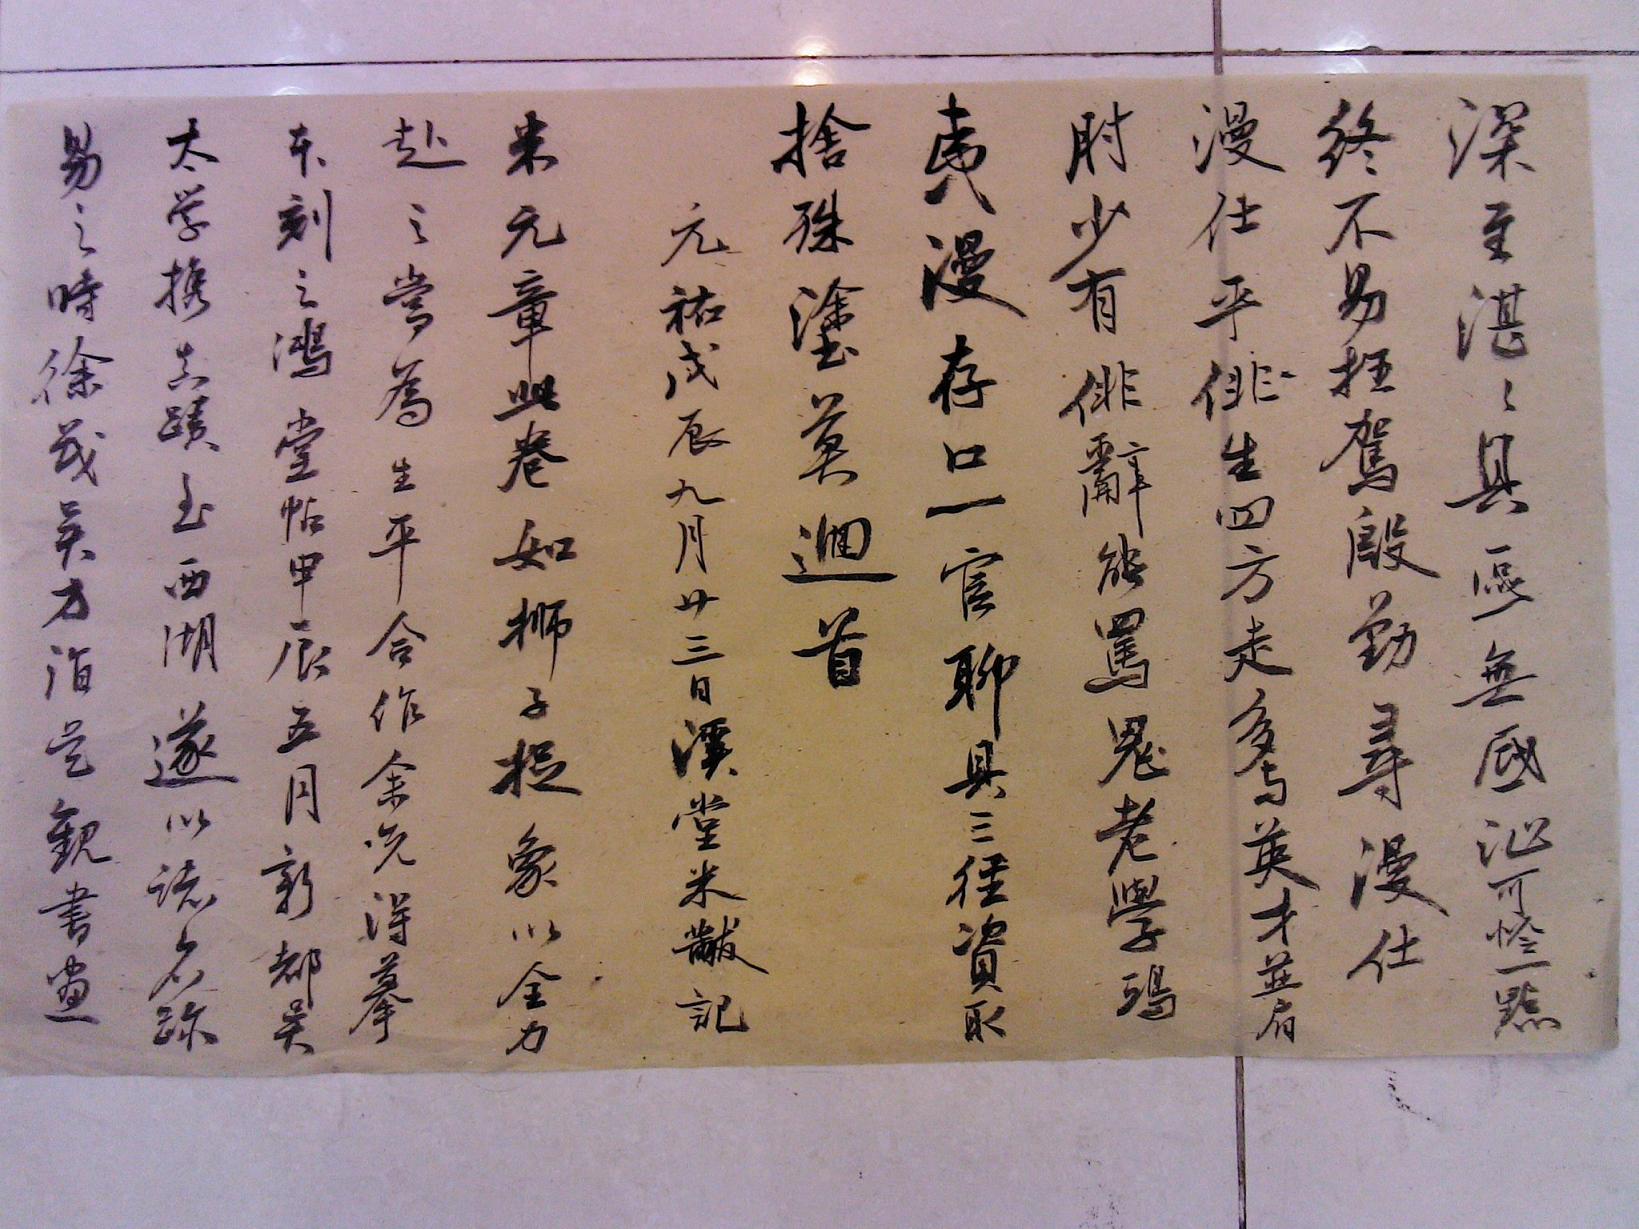 深至湛湛具區無底沚可憕一點
終不易枉駕殷勤尋漫仕
漫仕平俳生四方走多与英才並肩
肘少有俳辭能罵鬼老學鴻
夷漫存口一官聊具三徑資取
捨殊塗莫迴首
元祐戊辰九月廿三日溪堂米黻記
米元章此卷如獅子捉象以全力
赴之當為生平合作余先得摹
本刻之鴻堂帖甲辰五月新都吳
太学攜真蹟至西湖遂以諸名跡
易之時徐茂吳方詣吳觀書畫